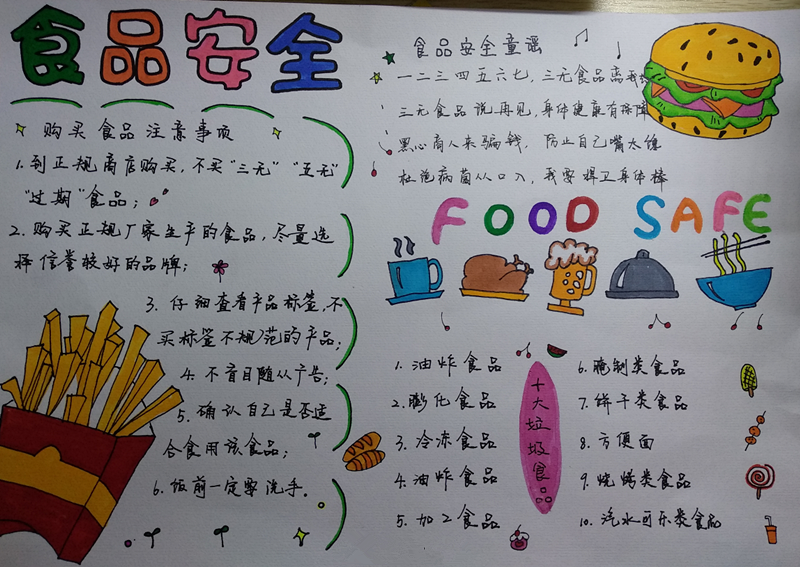 食品安全
购买食品注意事项
1. 到正规商店购买，不买“三无”“五无”
“过期”食品；
2. 购买正规厂家生产的食品，尽量选
择信誉较好的品牌；
3. 仔细查看产品标签，不
买标签不规范的产品；
4. 不盲目随从广告；
5. 确认自己是否适
合食用该食品；
6. 饭前一定要洗手。
食品安全童谣
一二三四五六七，三无食品离我
三无食品说再见，身体健康有保障
黑心商人来骗钱，防止自己嘴太馋
杜绝病菌从口入，我要捍卫身体棒
FOOD SAFE
十大垃圾食品
1. 油炸食品
2. 膨化食品
3. 冷冻食品
4. 油炸食品
5. 加工食品
6. 腌制类食品
7. 饼干类食品
8. 方便面
9. 烧烤类食品
10. 汽水可乐类食品